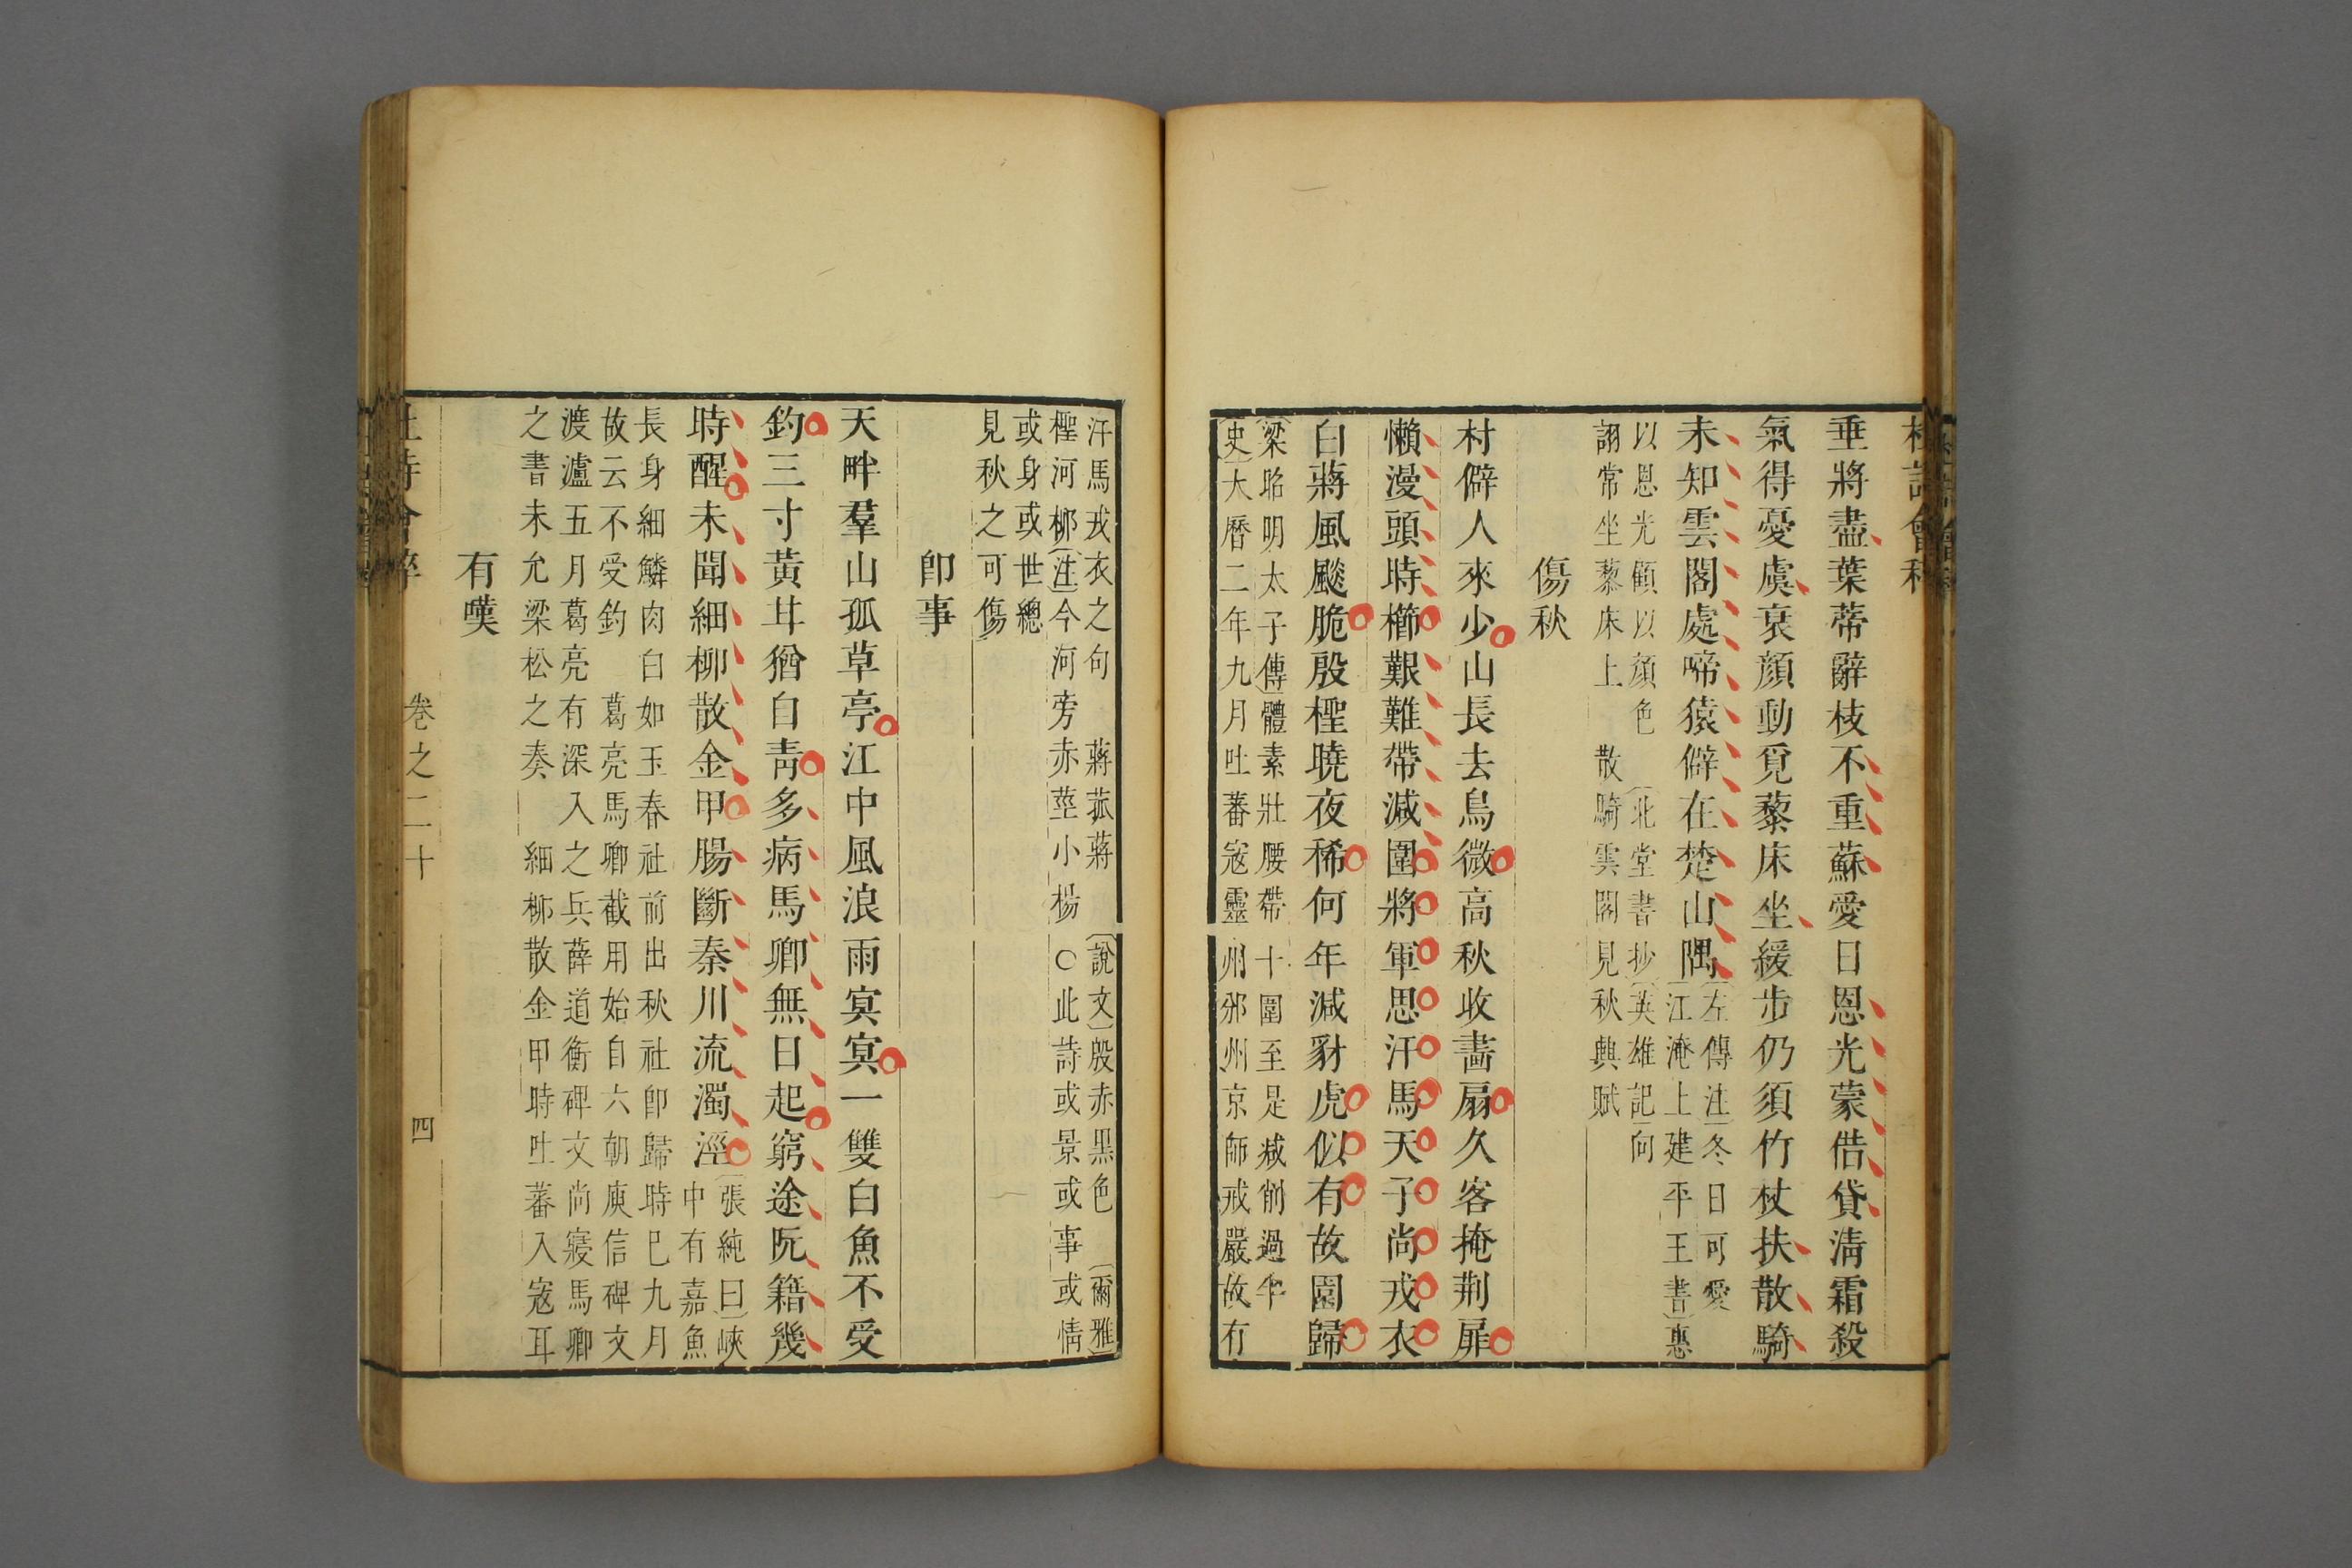 垂將盡葉蒂辭枝不重蘇愛日恩光蒙借貸清霜殺
氣得憂虞衰顏動覓藜床坐緩步仍須竹杖扶散騎
未知雲閣處啼猿僻在楚山隅
左傳注冬日可愛
江淹上建平王書惠
以恩光顧以顏色 北堂書抄英雄記向
詡常坐藜床上 散騎雲閣見秋興賦
傷秋
村僻人來少山長去鳥微高秋收畵扇久客掩荆扉
懶漫頭時櫛艱難帶減圍將軍思汗馬天子尚戎衣
白蔣風飈脆殷檉曉夜稀何年減豺虎似有故園歸
梁昭明太子傳體素壯腰帶十圍至是减削過半
史大曆二年九月吐蕃寇靈州邠州京師戒嚴故有
汗馬戎衣之句 蔣菰蔣說文殷赤黑色爾雅
檉河柳注今河旁赤莖小楊○此詩或景或事或情
或身或世總
見秋之可傷
卽事
天畔羣山孤草亭江中風浪雨㝠㝠一雙白魚不受
釣三寸黃甘猶自靑多病馬卿無日起窮途阮籍幾
時醒未聞細柳散金甲腸斷秦川流濁涇
張純曰峽
中有嘉魚
長身細鱗肉白如玉春社前出秋社卽歸時已九月
故云不受釣 葛亮馬卿截用始自六朝庾信碑文
渡瀘五月葛亮有深入之兵薛道衡碑文尚寢馬卿
之書未允梁松之奏 細柳散金甲時吐蕃入寇耳
有嘆
卷之二十
四